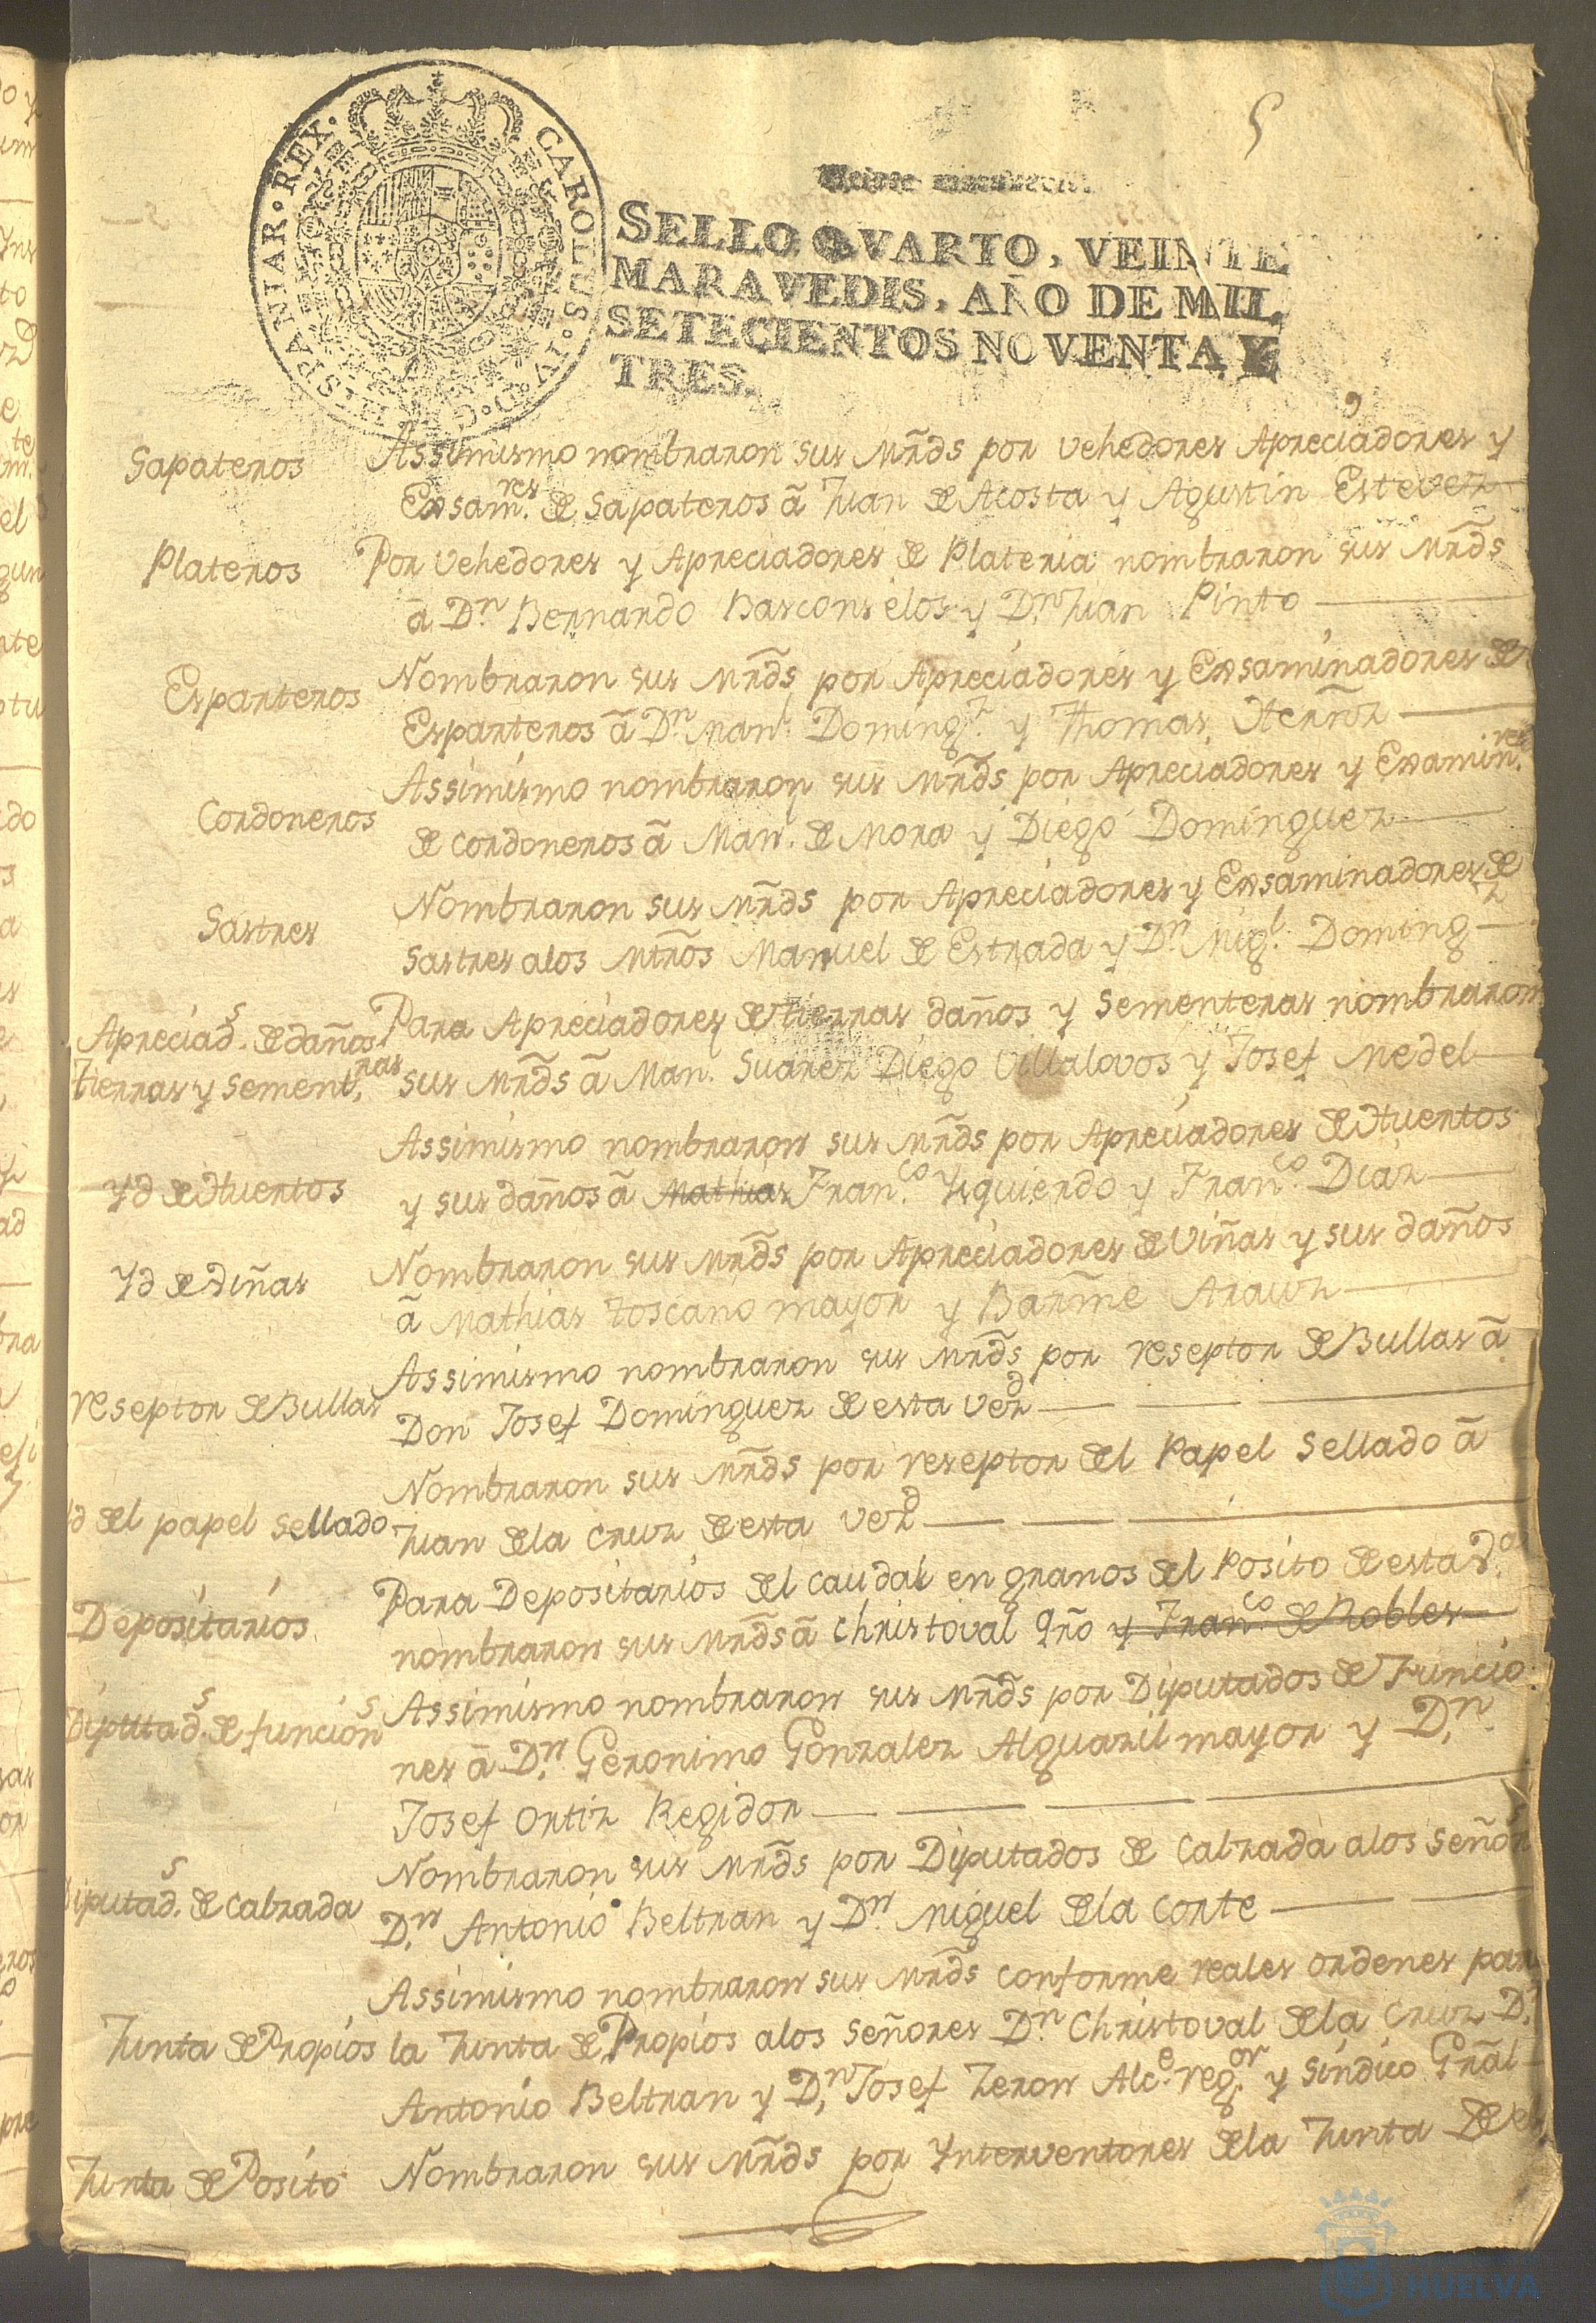 5
CAROLUS · IV · D · G · HISPANIAR · REX ·
SELLO QVARTO, VEINTE
MARAVEDIS, AÑO DE MIL
SETECIENTOS NOVENTA Y
TRES.
Sapateros
Assimismo nombraron sus Mr̃ds por vehedores Apreciadores y
Exsam.res de Sapateros â Juan de Acosta y Agustin Estevez
Plateros
Por vehedores y Apreciadores de Plateria nombraron sus Mr̃ds
â D.n Bernardo Basconselos y D.n Juan Pinto
Esparteros
Nombraron sus Mr̃ds por Apreciadores y Exsaminadores de
Esparteros â D.n Man.l Doming.z y Thomas Herñz
Cordoneros
Assimismo nombraron sus Mr̃ds por Apreciadores y Examin.res
de Cordoneros â Man.l de Mora y Diego Dominguez
Sastres
Nombraron sus Mr̃ds por Apreciadores y Exsaminadores de
Sastres alos Mtr̃os Manuel de Estrada y D.n Mig.l Domingz
Apreciad.s de daños
tierras y sement.ras
Para Apreciadores de tierras daños y Sementeras nombraron
sus Mr̃ds â Man. Suarez Diego Villalovos y Josef Medel
Yd de Huertos
Assimismo nombraron sus Mr̃ds por Apreciadores de Huertos
y sus daños â Mathias Fran.co Ysquierdo y Fran.co Diaz
Yd de viñas
Nombraron sus Mr̃ds por Apreciadores de Viñas y sus daños
â Mathias Toscano mayor y Barm̃e Arauz
reseptor de Bullas
Assimismo nombraron sus Mr̃ds por reseptor de Bullas â
Don Josef Dominguez de esta vezd
Yd del papel sellado
Nombraron sus Mr̃ds por reseptor del Papel Sellado â
Juan dela Cruz de esta vezd
Depositarios
Para Depositarios del caudal en granos del Posito de esta V.a
nombraron sus Mr̃ds â Christoval Qr̃o y Fran.co de Robles
Diputad.s de funcions
Assimismo nombraron sus Mr̃ds por Diputados de Funcio
nes â D.n Geronimo Gonzalez Alguazil mayor y D.n
Josef Ortiz Regidor
Diputad.s de Calzada
Nombraron sus Mr̃ds por Diputados de Calzada alos Señors
D.n Antonio Beltran y D.n Miguel dela Corte
Junta de Propios
Assimismo nombraron sus Mr̃ds conforme reales ordenes par
la Junta de Propios alos Señores D.n Christoval dela Cruz D.n
Antonio Beltran y D.n Josef Zeron Alc.e reg.or y Sindico Grãl
Junta de Posito
Nombraron sus Mr̃ds por Ynterventores dela Junta
HUELVA